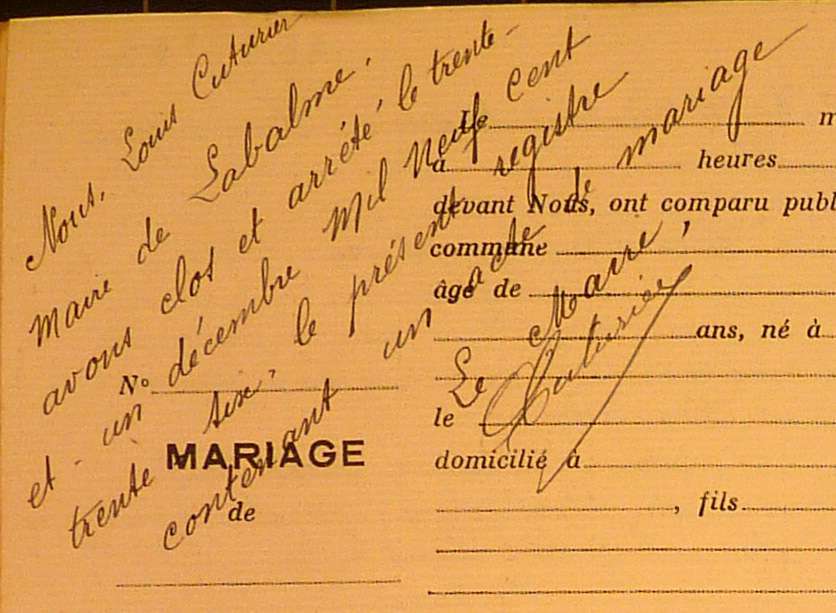 Nous, Louis Cuturier
maire de Labalme,
avons clos et arrêté le trente-
et-un décembre Mil Neuf Cent
trente six, le présent registre
contenant un acte de mariage
Le Maire,
Cuturier
No
MARIAGE
de
Le m
à heures
devant Nous, ont comparu publ
commune
âgé de
ans, né à
le
domicilié à
, fils